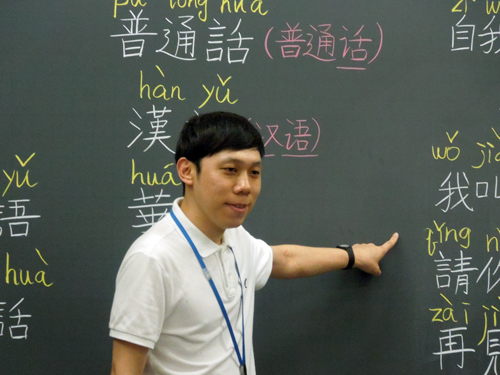 yǔ
語
huà
話
pǔ tōng huà
普通話(普通话)
hàn yǔ
漢 (汉语)
huá
華
zì
自我
wǒ
我叫
qǐng
請你
zài
再見